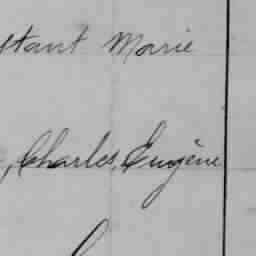 stant Marie
, Charles, Eugène